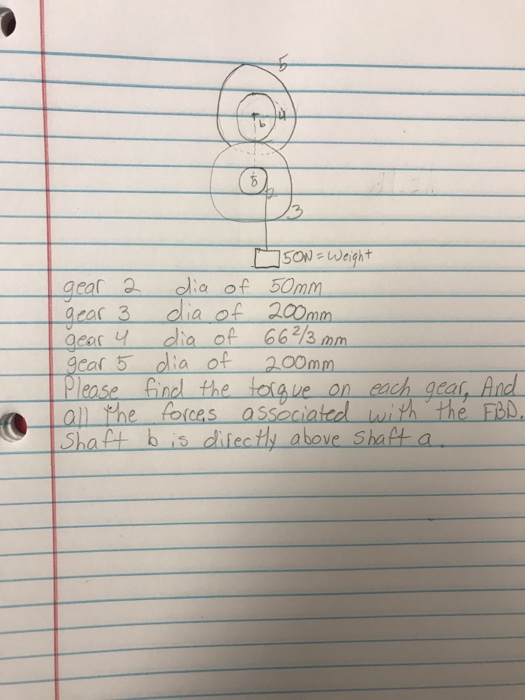 5
4
b
a
2
3
50N = Weight
gear 2 dia of 50mm
gear 3 dia of 200mm
gear 4 dia of 66 2/3 mm
gear 5 dia of 200mm
Please find the torque on each gear, And
all the forces associated with the FBD.
Shaft b is directly above shaft a.